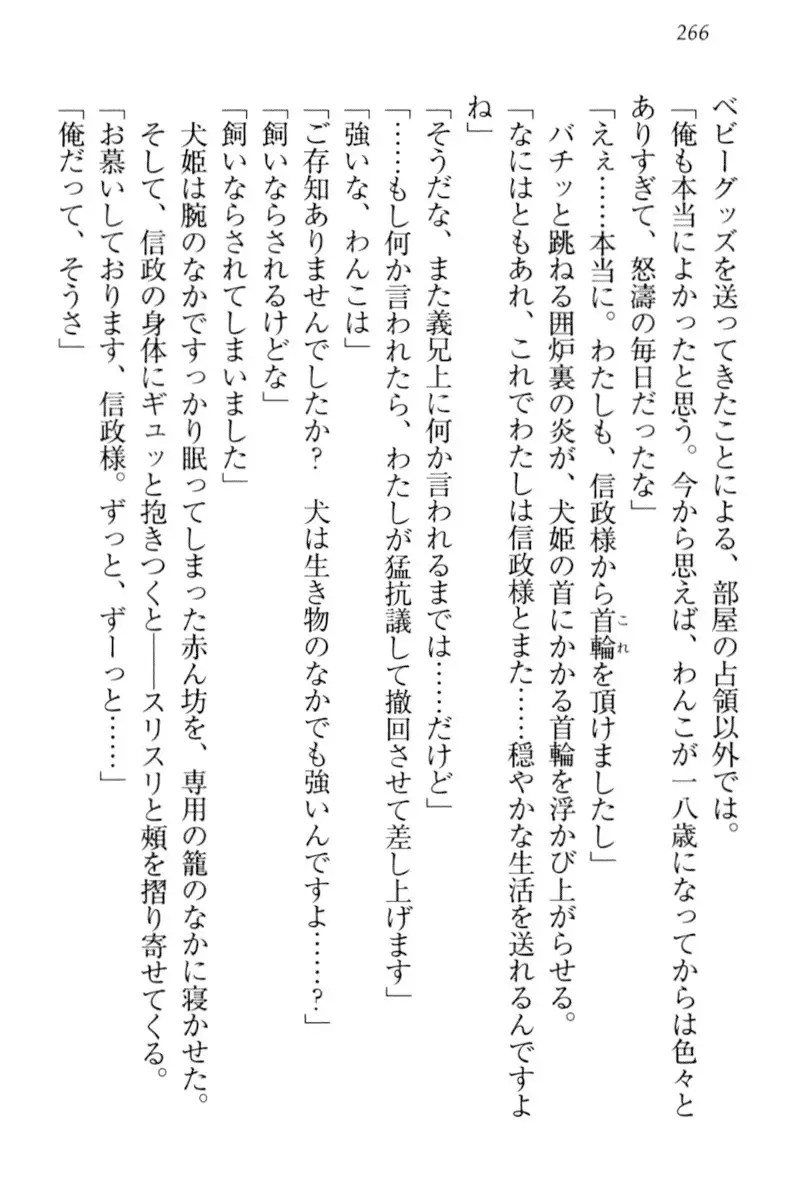 266
ベビーグッズを送ってきたことによる、部屋の占領以外では。
「俺も本当によかったと思う。今から思えば、わんこが一八歳になってからは色々と
ありすぎて、怒濤の毎日だったな」
「えぇ……本当に。わたしも、信政様から首輪を頂けましたし」
バチッと跳ねる囲炉裏の炎が、犬姫の首にかかる首輪を浮かび上がらせる。
「なにはともあれ、これでわたしは信政様とまた……穏やかな生活を送れるんですよ
ね」
「そうだな、また義兄上に何か言われるまでは……だけど」
「……もし何か言われたら、わたしが猛抗議して撤回させて差し上げます」
「強いな、わんこは」
「ご存知ありませんでしたか？　犬は生き物のなかでも強いんですよ……？」
「飼いならされるけどな」
「飼いならされてしまいました」
犬姫は腕のなかですっかり眠ってしまった赤ん坊を、専用の籠のなかに寝かせた。
そして、信政の身体にギュッと抱きつくと――スリスリと頰を摺り寄せてくる。
「お慕いしております、信政様。ずっと、ずーっと……」
「俺だって、そうさ」
これ